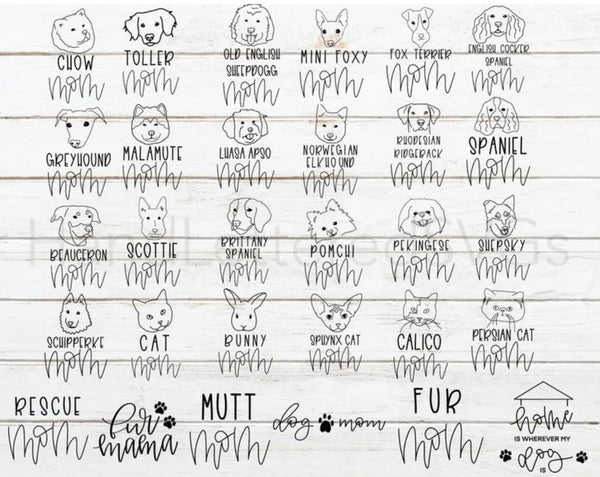 CHOW
mom
TOLLER
mom
OLD ENGLISH
SHEEPDOGG
mom
MINI FOXY
mom
FOX TERRIER
mom
ENGLISH COCKER
SPANIEL
mom
GREYHOUND
mom
MALAMUTE
mom
LHASA APSO
mom
NORWEGIAN
ELKHOUND
mom
RHODESIAN
RIDGEBACK
mom
SPANIEL
mom
BEAUCERON
mom
SCOTTIE
mom
BRITTANY
SPANIEL
mom
POMCHI
mom
PEKINGESE
mom
SHEPSKY
mom
HandLetteredSVGs
SCHIPPERKE
mom
CAT
mom
BUNNY
mom
SPHYNX CAT
mom
CALICO
mom
PERSIAN CAT
mom
RESCUE
mom
fur
mama
MUTT
mom
dog mom
FUR
mom
home
IS WHEREVER MY
dog
IS